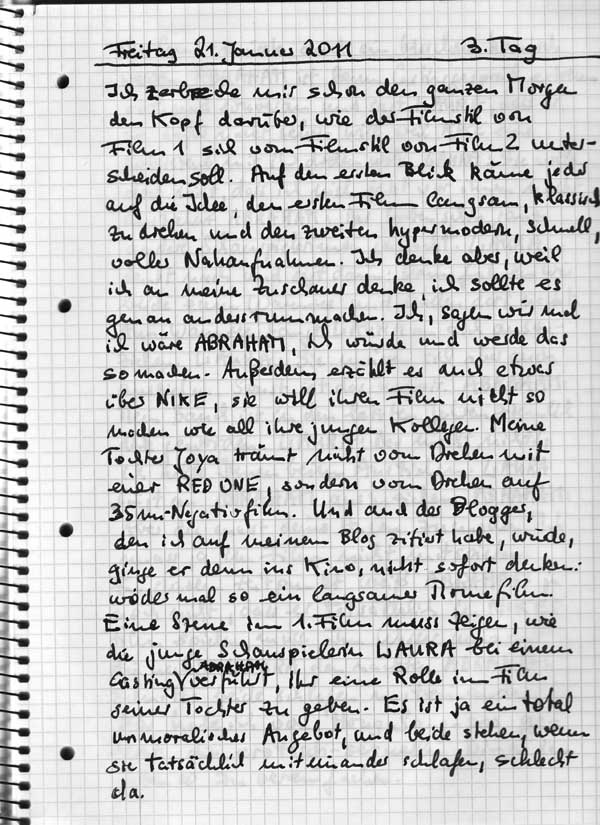 Freitag 21. Januar 2011 3. Tag
Ich zerbreche mir schon den ganzen Morgen
den Kopf darüber, wie der Filmstil von
Film 1 sich vom Filmstil von Film 2 unter-
scheiden soll. Auf den ersten Blick käme jeder
auf die Idee, den ersten Film langsam, klassisch
zu drehen und den zweiten hypermodern, schnell,
voller Nahaufnahmen. Ich denke aber, weil
ich an meine Zuschauer denke, ich sollte es
genau andersrum machen. Ich, sagen wir mal
ich wäre ABRAHAM, ich würde und werde das
so machen. Außerdem erzählt es auch etwas
über NIKE, sie will ihren Film nicht so
machen wie all ihre jungen Kollegen. Meine
Tochter Joya träumt nicht vom Drehen mit
einer RED ONE, sondern vom Drehen auf
35mm-Negativfilm. Und auch der Blogger,
den ich auf meinem Blog zitiert habe, würde,
ginge er denn ins Kino, nicht sofort denken:
wieder mal so ein langsamer Film.
Eine Szene im 1. Film muss zeigen, wie
die junge Schauspielerin LAURA bei einem
Casting ABRAHAM verführt, ihr eine Rolle im Film
seiner Tochter zu geben. Es ist ja ein total
unmoralisches Angebot, und beide stehen, wenn
sie tatsächlich miteinander schlafen, schlecht
da.